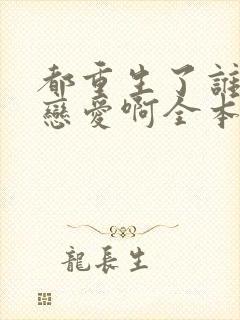 都重生了誰
戀愛啊全本
龍長生